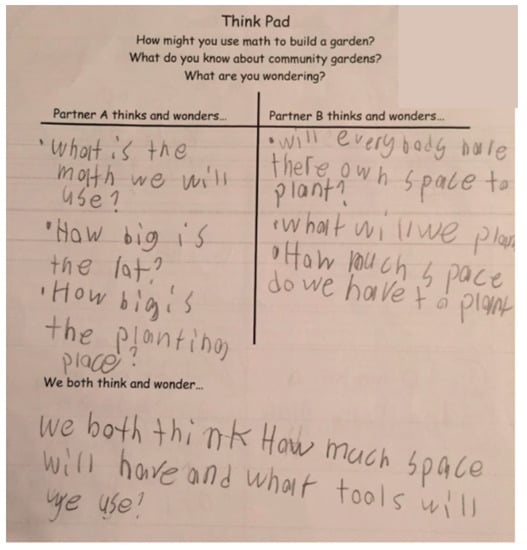 Think Pad
How might you use math to build a garden?
What do you know about community gardens?
What are you wondering?
Partner A thinks and wonders...
• What is the
math we will
use?
• How big is
the lot?
• How big is
the planting
place?
Partner B thinks and wonders...
• will everybody have
there own space to
plant?
• what will we plan
• How much space
do we have to plant
We both think and wonder...
We both think How much space
will have and what tools will
we use?